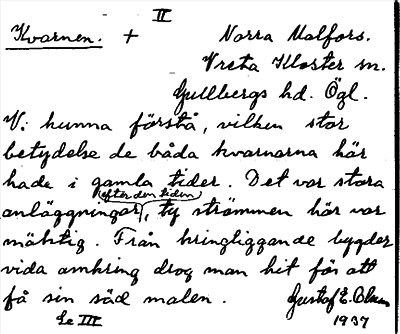 II
Kvarnen. + Norra Malfors.
Vreta Kloster sn.
Gullbergs hd. Ögl.
Vi kunna förstå, vilken stor
betydelse de båda kvarnarna här
hade i gamla tider. Det var stora
(efter den tiden)
anläggningar, ty strömmen här var
mäktig. Från kringliggande bygder
vida omkring drog man hit för att
få sin säd malen. Gustaf E.
Se III 1937